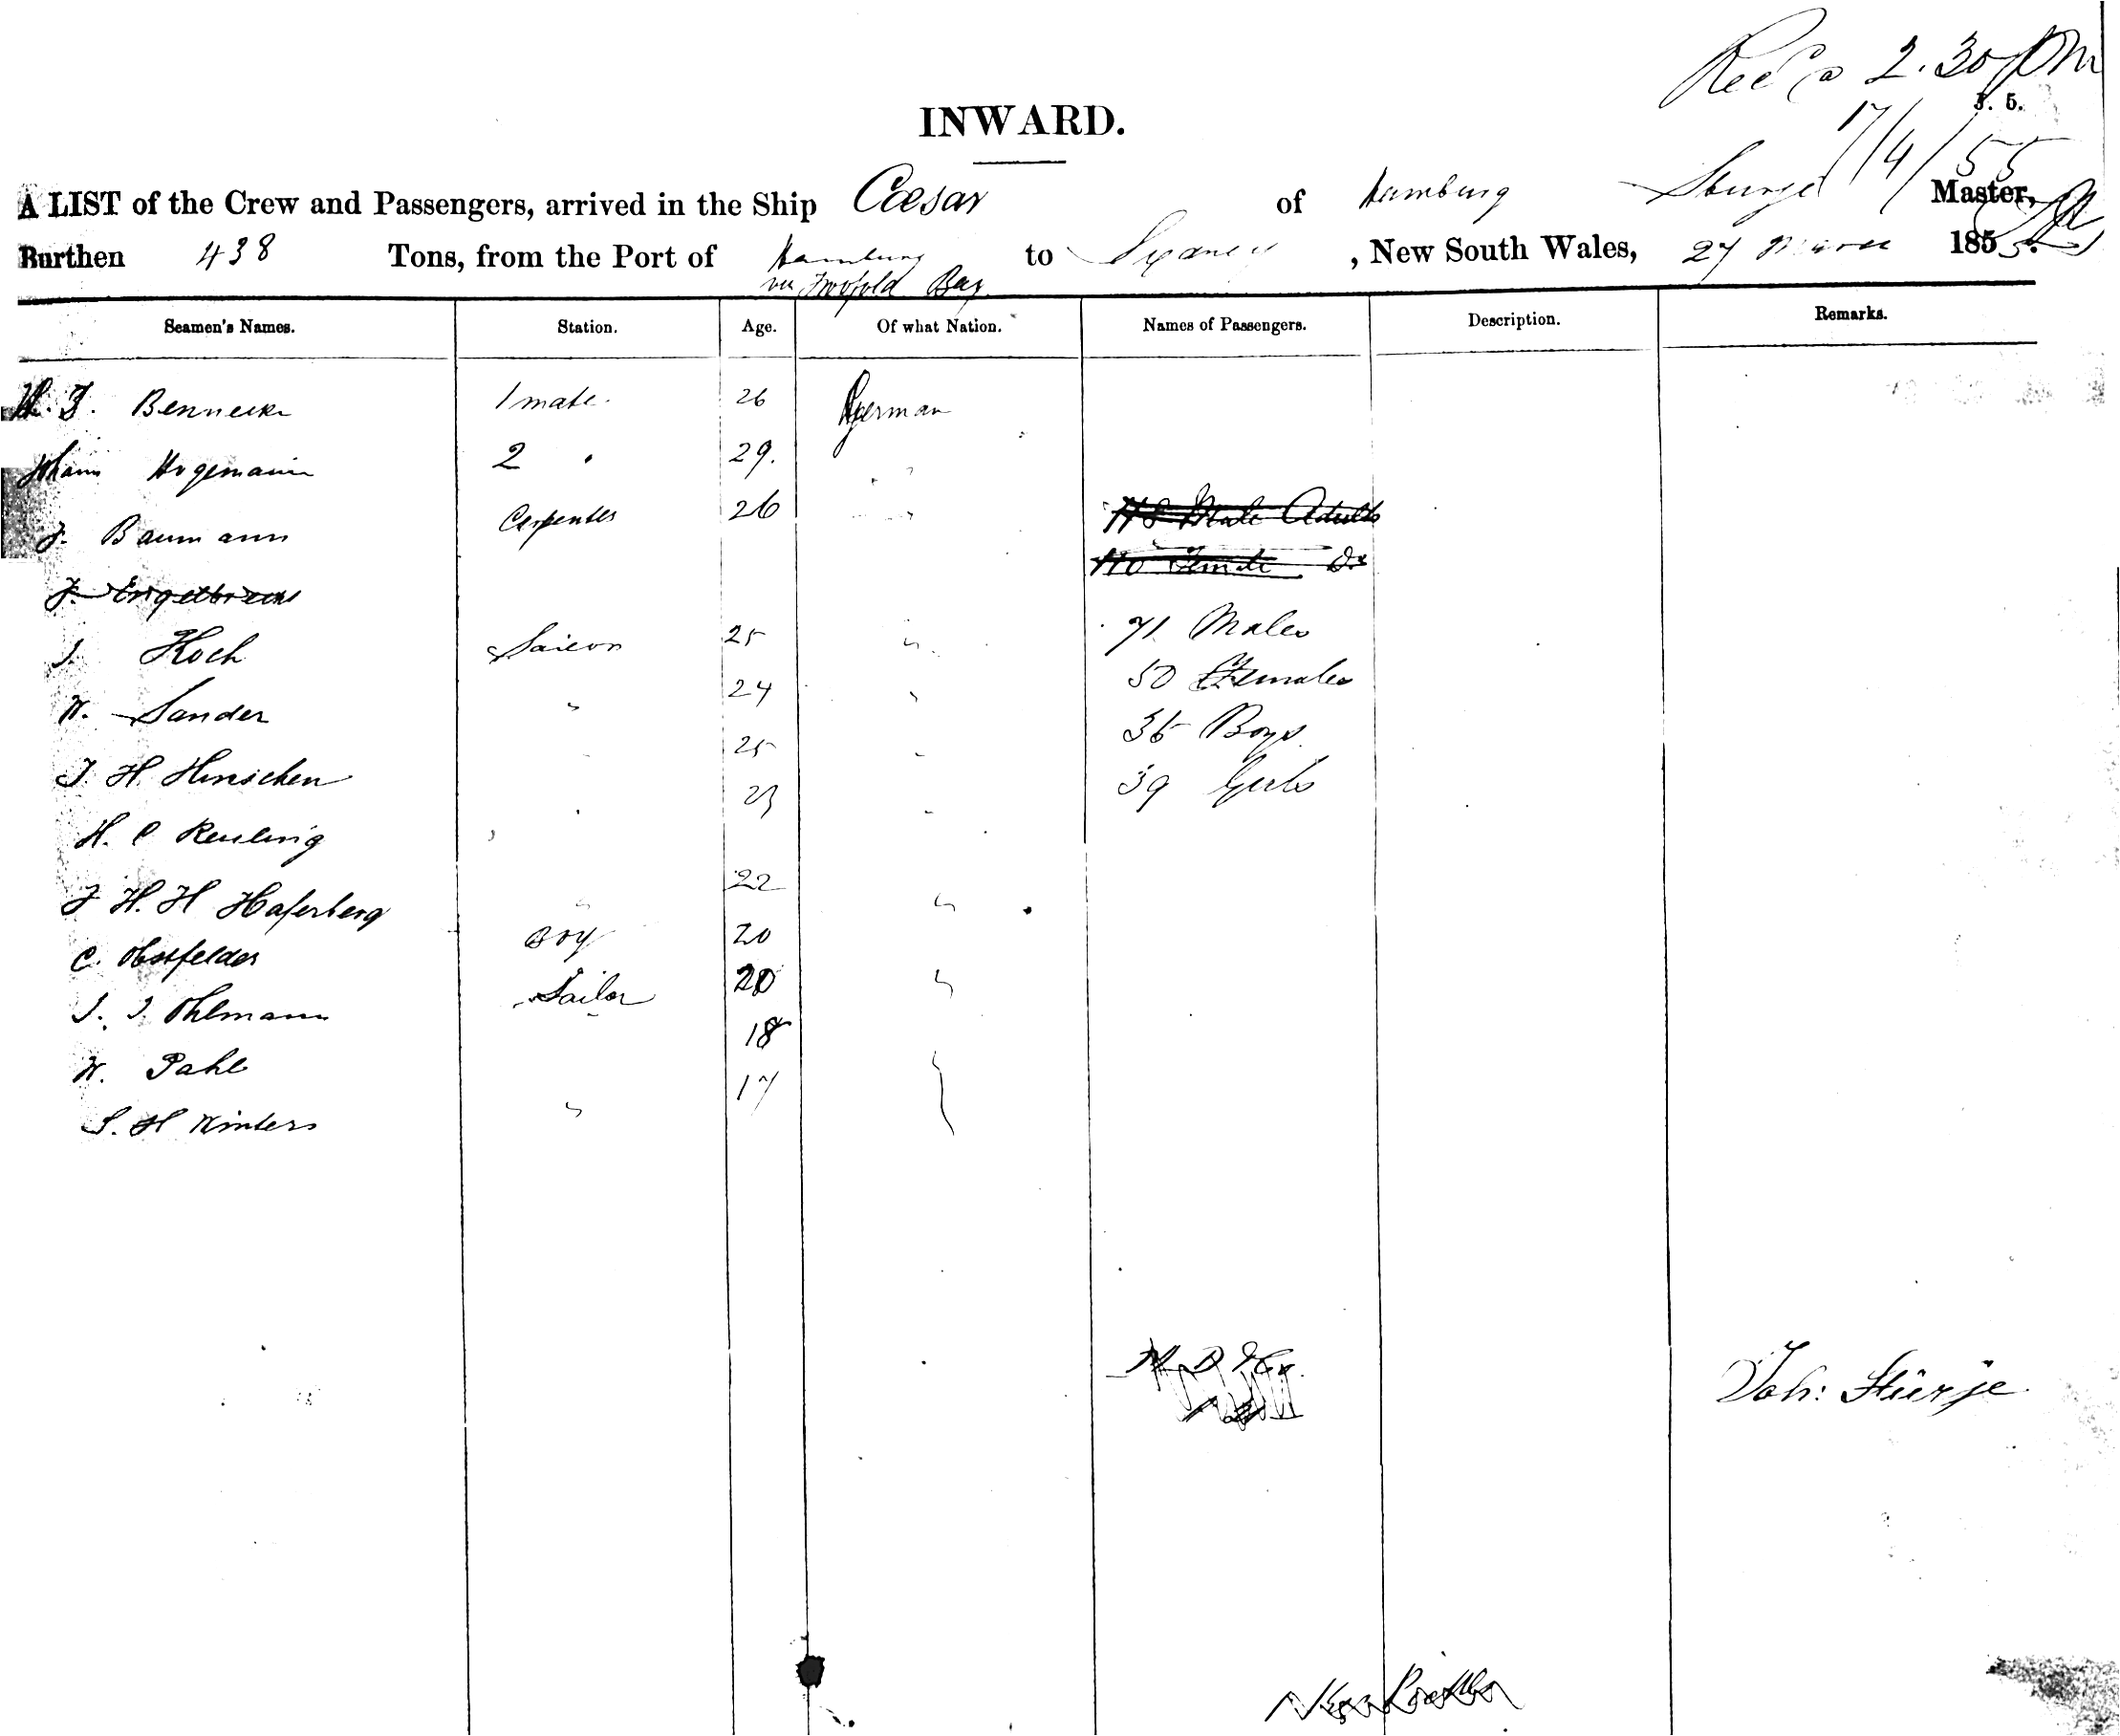 Recd 2.30 PM
J. 5.
17/4/55
INWARD.
A LIST of the Crew and Passengers, arrived in the Ship Cæsar of Hamburg Sturje Master,
Burthen 438 Tons, from the Port of Hamburg to Sydney, New South Wales, 27 March 1855.
via Twofold Bay
Seamen's Names. Station. Age. Of what Nation. Names of Passengers. Description. Remarks.
Bennecke 1 mate. 26 German
Johann Hagemann 2 " 29. "
J. Baumann Carpenter 26 " 
Male Adults
Female Do
J. Koch Sailor 25 " 71 Males
W. Sander " 24 " 50 Females
J. H. Hinschen " 25 " 36 Boys
H. C Reuling " 23 " 39 Girls
J H. H Haferberg " 22 "
C. Obstfelder Boy 20
J. J. Ohlmann Sailor 20 "
W. Pahl " 18
J. H Winters " 17
Joh: Stürje